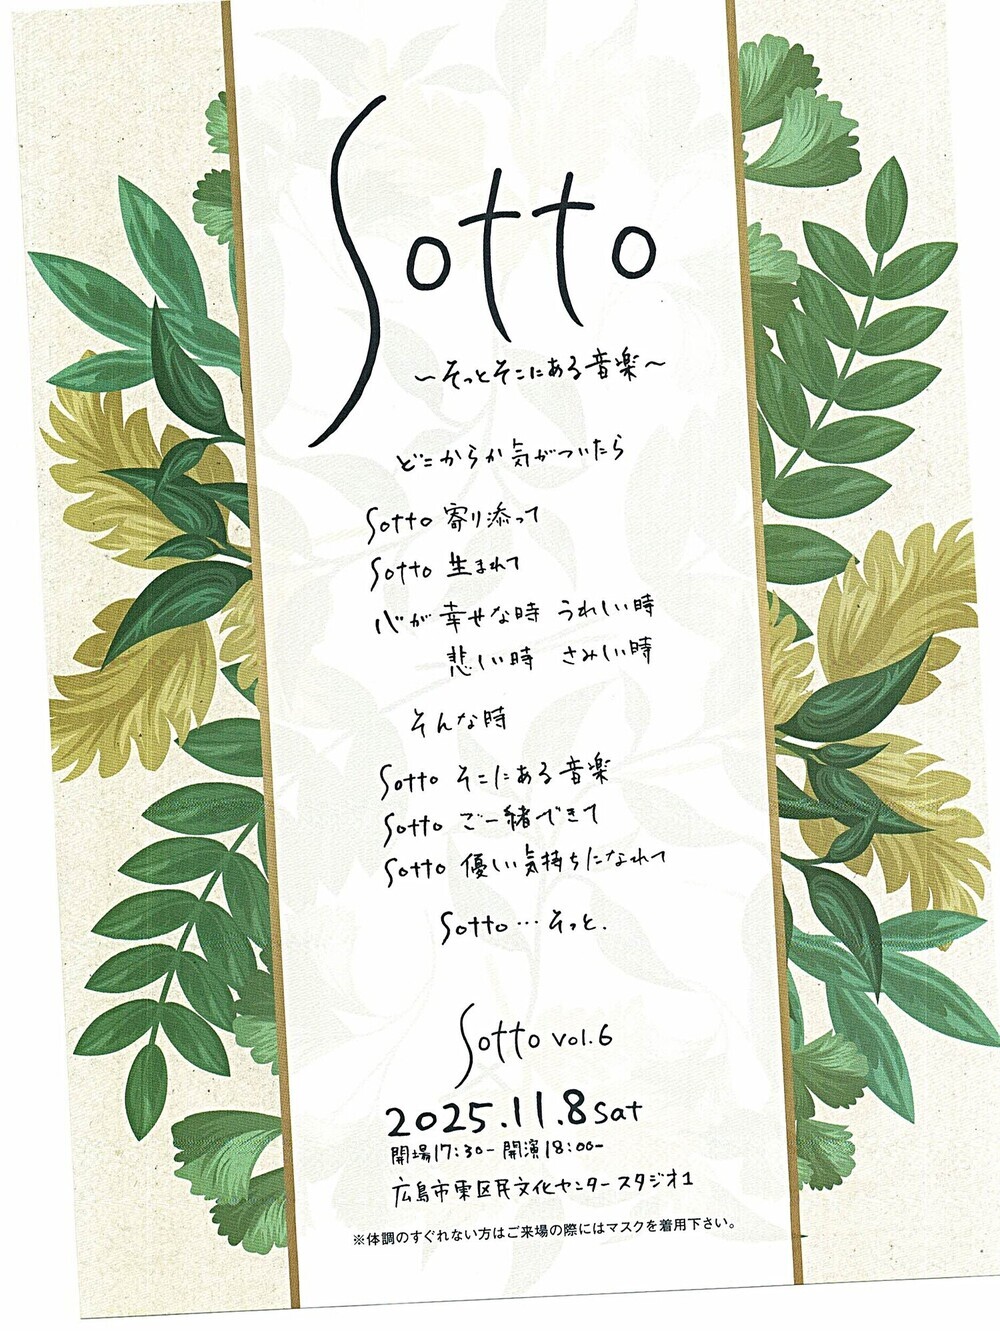 Sotto
～そっとそこにある音楽～
どこからか気がついたら
Sotto 寄り添って
Sotto 生まれて
心が幸せな時 うれしい時
悲しい時 さみしい時
そんな時
Sotto そこにある音楽
Sotto ご一緒できて
Sotto 優しい気持ちになれて
Sotto…そっと.
Sotto vol.6
2025.11.8 sat
開場17:30- 開演18:00-
広島市東区民文化センタースタジオ1
※体調のすぐれない方はご来場の際にはマスクを着用下さい。